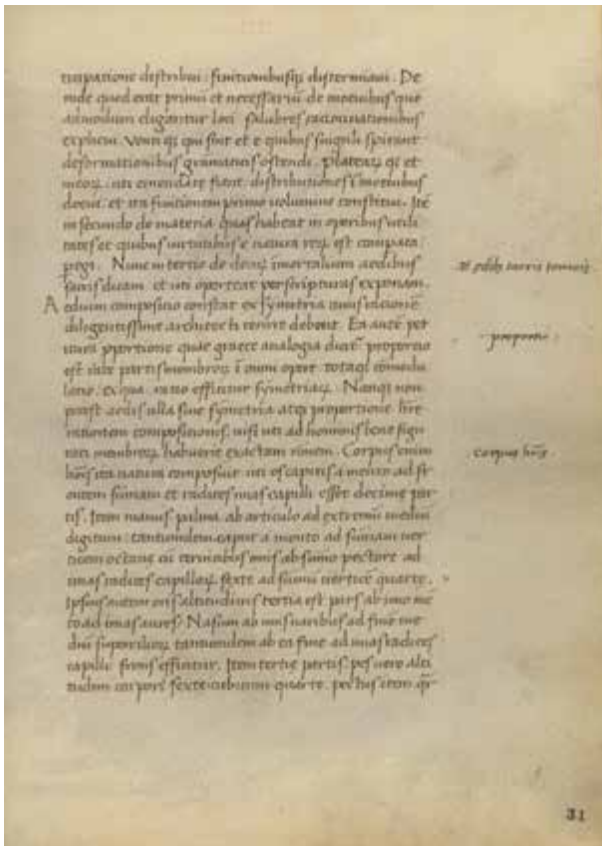 ticipatione distribui: finitionibusq; disterminavi. De
inde quod erat primū et necessariū de moenibus que
admodum eligantur loci salubres ratiocinationibus
explicui. Venti q; qui sint et e quibus singuli spirant
deformationibus gramatiis ostendi. plateaꝝ q; et
uicoꝝ: uti emendate fiant distributiones ī moenibus
docui. et ita finitionem primo uolumine constitui. Itē
in secundo de materia quas habeat in operibus utili
tates et quibus uirtutibus e natura reꝝ est compata
pegi. Nunc in tertio de deoꝝ īmortalium aedibus
sacris dicam. et uti oporteat perscriptas exponam.
Aedium compositio constat ex symetria cuius rationē
diligentissime architecti tenere debent. Ea autē pa
ritur pportione quae graece analogia dicit̄ proportio
est rate partis membroꝝ ī omni opere totaq; cōmodu
latio. ex qua ratio efficitur symetriaꝝ. Nanq; non
potest aedis ulla sine symetria atq; proportione h̄re
rationem compositionis. nisi uti ad hominis bene figu
rati membroꝝ habuerit exactam rōnem. Corpus enim
hōis ita natura composuit uti os capitis a mento ad fr
ontem sūmam et radices imas capilli esset decime par
tis. Item manus palma ab articulo ad extremū mediū
digitum: tantundem. caput a mento ad sūmum uer
ticem octaue cū ceruicibus imis ab sūmo pectore ad
imas radices capilloꝝ sexte ad sūmū uerticē quarte.
Ipsius autem oris altitudinis tertia est pars ab imo mē
to ad imas nares. Nasum ab imis naribus ad finē me
diū supercilioꝝ tantundem ab ea fine ad imas radices
capilli frons efficitur. Item tertie partis. pes uero alti
tudinis corporis sexte. cubitum quarte. pectus item q̄r
proportio
corpus hōis
31